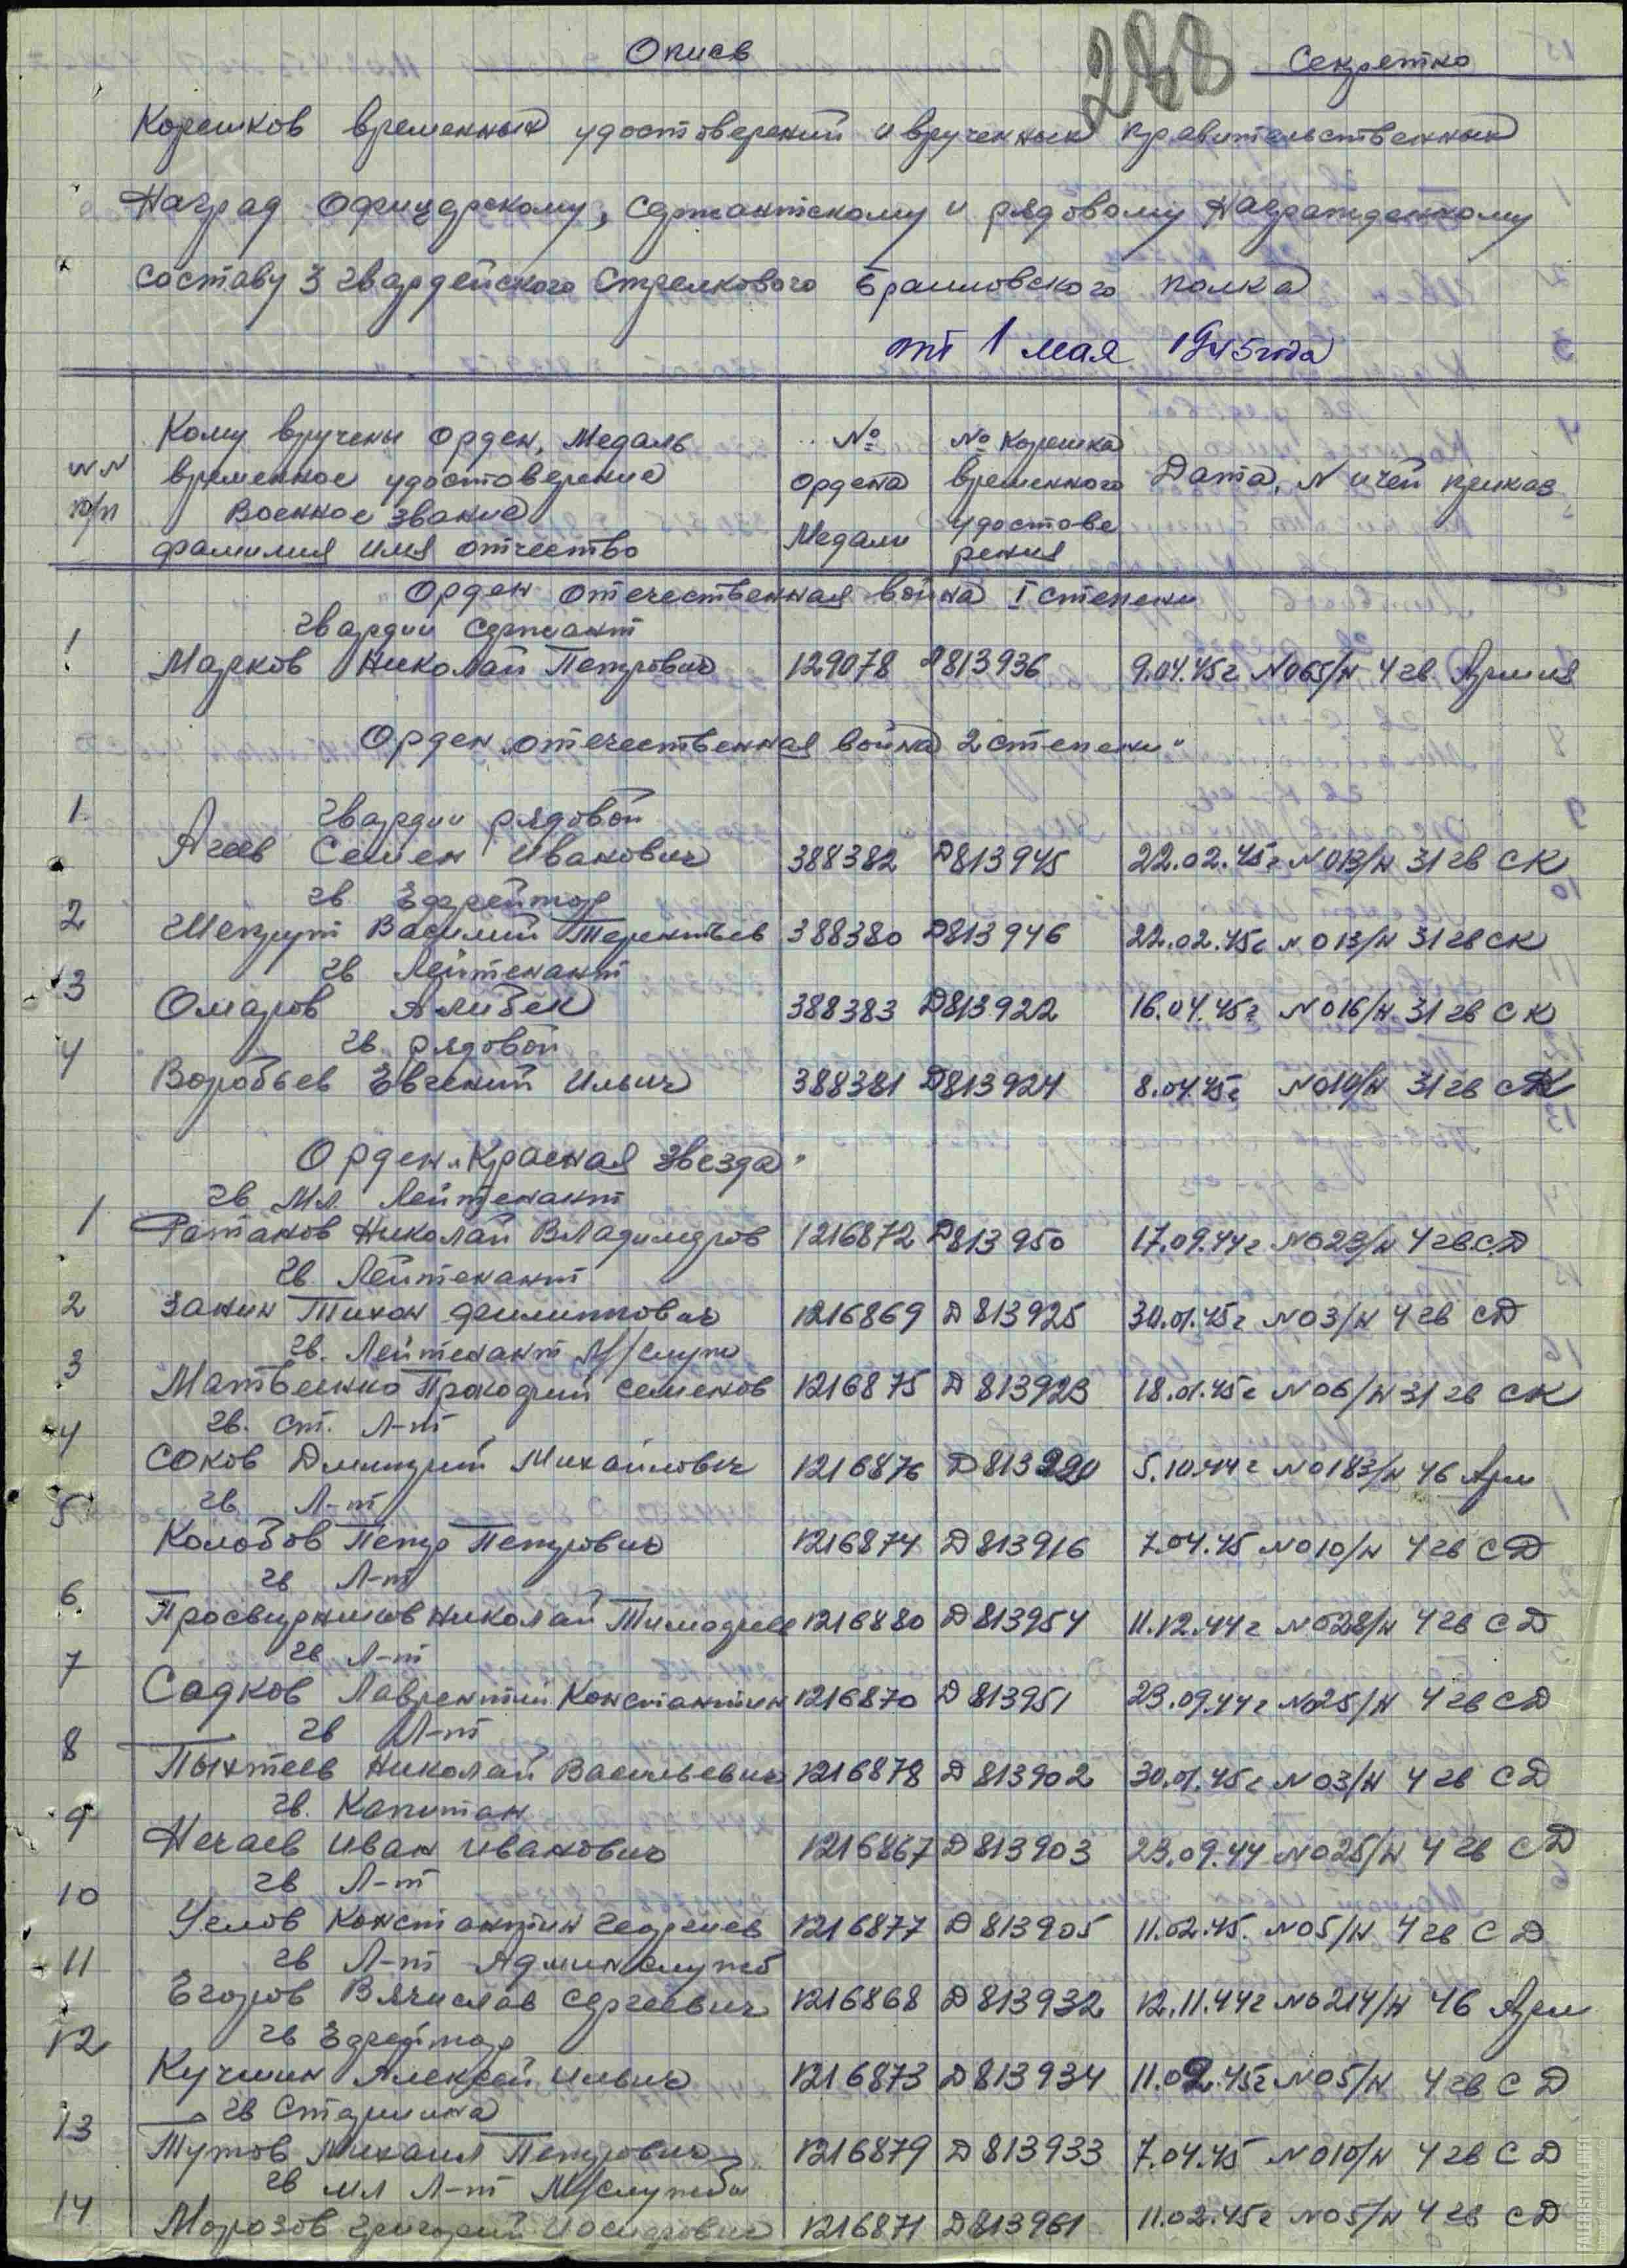 Опись
288
Секретно
Корешков временных удостоверений и врученных правительственных
Наград офицерскому, сержантскому и рядовому награжденному
составу 3 гвардейского стрелкового Браиловского полка
от 1 мая 1945 года
NN п/п
Кому вручены орден, медаль временное удостоверение Военное звание фамилия имя отчество
№ ордена Медали
№ Корешка временного удостоверения
Дата, N и чей приказ
Орден отечественная война I степени
гвардии сержант
1 Марков Николай Петрович 129078 Д813936 9.04.45г N065/н 4 гв. Армия
Орден „отечественная война 2 степени"
гвардии рядовой
1. Агеев Семен Иванович 388382 Д813945 22.02.45г N013/н 31 гв СК
гв. Ефрейтор
2 Шепрут Василий Терентьев 388380 Д813946 22.02.45г N013/н 31 гв СК
гв Лейтенант
3 Омаров Алибек 388383 Д813922 16.04.45г N016/н 31 гв СК
гв. рядовой
4 Воробьев Евгений Ильич 388381 Д813924 8.04.45г N010/н 31 гв СК
Орден „Красная звезда"
гв мл. Лейтенант
1 Ратанов Николай Владимиров 1216872 Д813950 17.09.44г N023/н 4 гв.СД
гв. Лейтенант
2 Занин Тихон Филиппович 1216869 Д813925 30.01.45г N03/н 4 гв СД
гв. Лейтенант М/служ
3 Матвеенко Прокофий Семенов 1216875 Д813923 18.01.45г N06/н 31 гв СК
гв. ст. Л-т
4 Соков Дмитрий Михайлович 1216876 Д813920 5.10.44г N0183/н 46 Арм
гв Л-т
5 Колобов Петр Петрович 1216874 Д813916 7.04.45 N010/н 4 гв СД
гв Л-т
6 Просвирников Николай Тимофеев 1216880 Д813954 11.12.44г N028/н 4 гв СД
гв Л-т
7 Садков Лаврентий Константин 1216870 Д813951 23.09.44г N025/н 4 гв СД
гв Л-т
8 Пыхтеев Николай Васильевич 1216878 Д813902 30.01.45г N03/н 4 гв СД
гв. Капитан
9 Нечаев Иван Иванович 1216867 Д813903 23.09.44 N025/н 4 гв СД
гв Л-т
10 Углов Константин Георгиев 1216877 Д813905 11.02.45. N05/н 4 гв СД
гв Л-т Админ службы
11 Егоров Вячислав Сергеевич 1216868 Д813932 12.11.44г N0214/н 46 Арм
гв Ефрейтор
12 Кучмин Алексей Ильич 1216873 Д813934 11.02.45г N05/н 4 гв СД
гв Старшина
13 Тутов Михаил Петрович 1216879 Д813933 7.04.45 N010/н 4 гв СД
гв мл Л-т М/службы
14 Морозов Григорий Иосифович 1216871 Д813961 11.02.45г N05/н 4 гв СД
FALERISTIKA.INFO